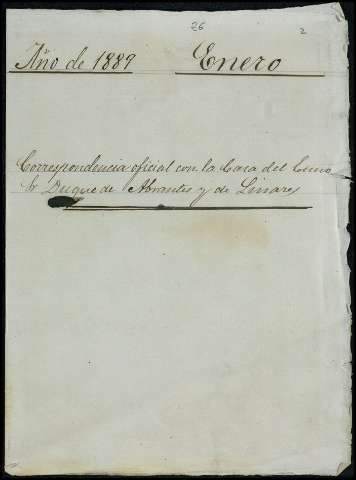 26 2
Año de 1889 Enero
Correspondencia oficial con la Casa del Excmo
Sr Duque de Abrantes y de Linares